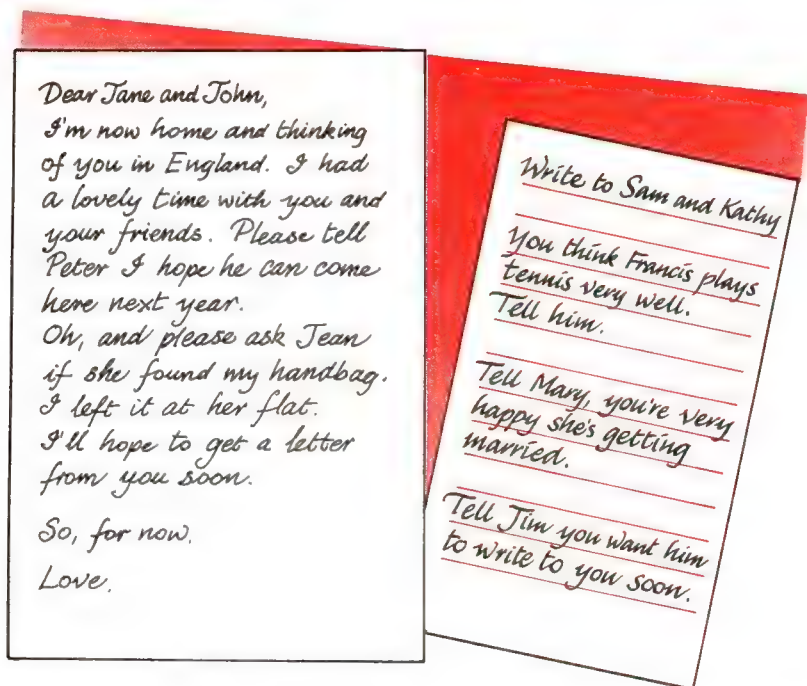 Dear Jane and John,
I'm now home and thinking
of you in England. I had
a lovely time with you and
your friends. Please tell
Peter I hope he can come
here next year.
Oh, and please ask Jean
if she found my handbag.
I left it at her flat.
I'll hope to get a letter
from you soon.
So, for now.
Love.
Write to Sam and Kathy
You think Francis plays
tennis very well.
Tell him.
Tell Mary, you're very
happy she's getting
married.
Tell Jim you want him
to write to you soon.